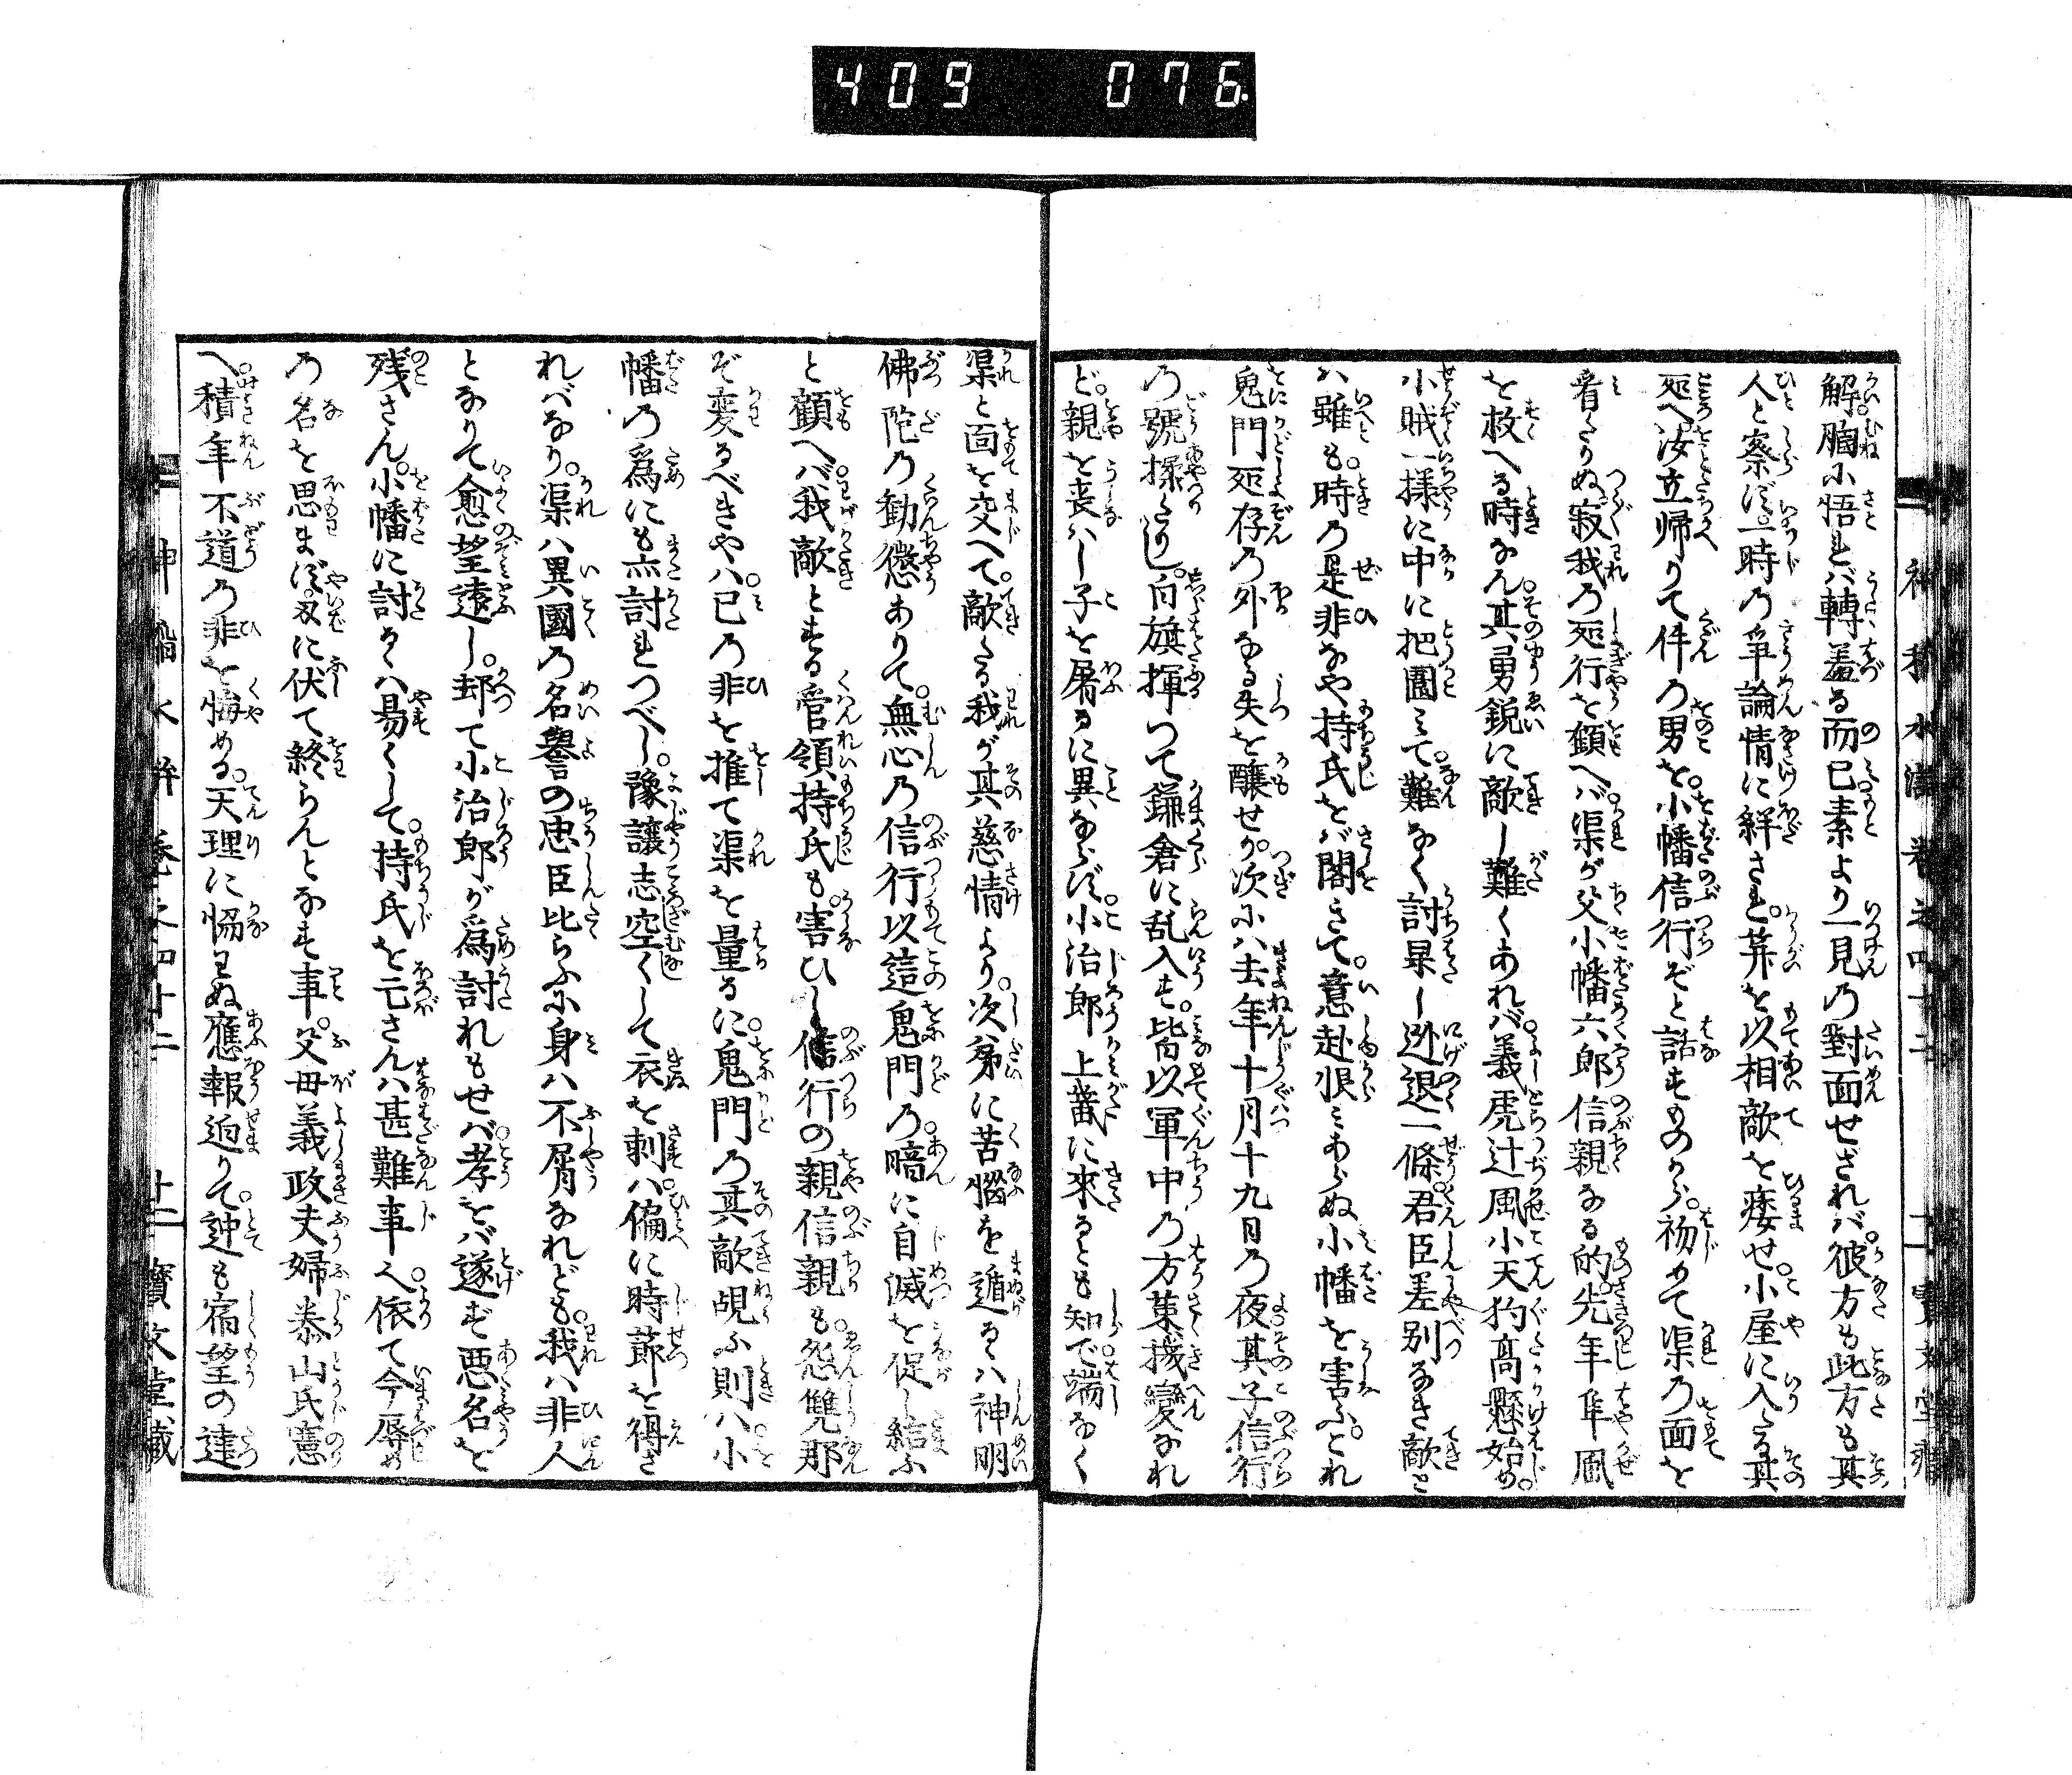 409 076
解。胸に悟れバ轉羞る而已素より一見の對面せざれバ。彼方も此方も其
人と察ず。一時の爭論情に絆され。筭を以相敵を痿せ。小屋に入たる其
処へ汝立帰りて件の男を。小幡信行ぞと話すものから。初めて渠の面を
看たりぬ寂我の処行を顧へバ。渠が父小幡六郎信親なる的。先年隼風
を救へる時なん。其勇鋭に敵し難くあれバ。義虎辻風小天狗高懸始め。
小賊一様に中に把圍ミて。難なく討果し迯退一條。君臣差別なき敵と
ハ雖も。時の是非なや持氏をバ閣きて。意赴恨ミあらぬ小幡を害ふ。これ
鬼門処存の外なる失を醸せが。次にハ去年十月十九日の夜其子信行
の號操たりし。白旗揮つて鎌倉に乱入す。皆以軍中の方策機變なれ
ど。親を喪ハし子を屠るに異ならず。小治郎上義に來るとも知で端なく
渠と面を交へて。敵たる我が其慈情より。次第に苦惱を遁るハ神明
佛陀の勧懲ありて。無心の信行以這鬼門の暗に自滅を促し給ふ
と顧へバ。我敵とする管領持氏も。害ひし信行の親信親も。怨讐那
ぞ変るべきやハ。已の非を推て渠を量るに。鬼門の其敵覘ふ則ハ。小
幡の爲にも亦討れつべし。豫讓志空くして衣を刺ハ。偏に時節を得ざ
れバなり。渠ハ異國の名譽の忠臣比らふに身ハ不屑なれども。我ハ非人
となりて愈望遠し。却て小治郎が爲討れもせバ。孝をバ遂ず悪名を
残さん。小幡に討るハ易くして。持氏を亡さんハ甚難事。依て今辱め
の名を思まず。刄に伏て終らんとなす事。父母義政夫婦泰山氏憲
へ。積年不道の非を悔める。天理に恊ぬ應報迫りて。迚も宿望の達
神稻水滸巻之四十二 十二 寶文堂藏